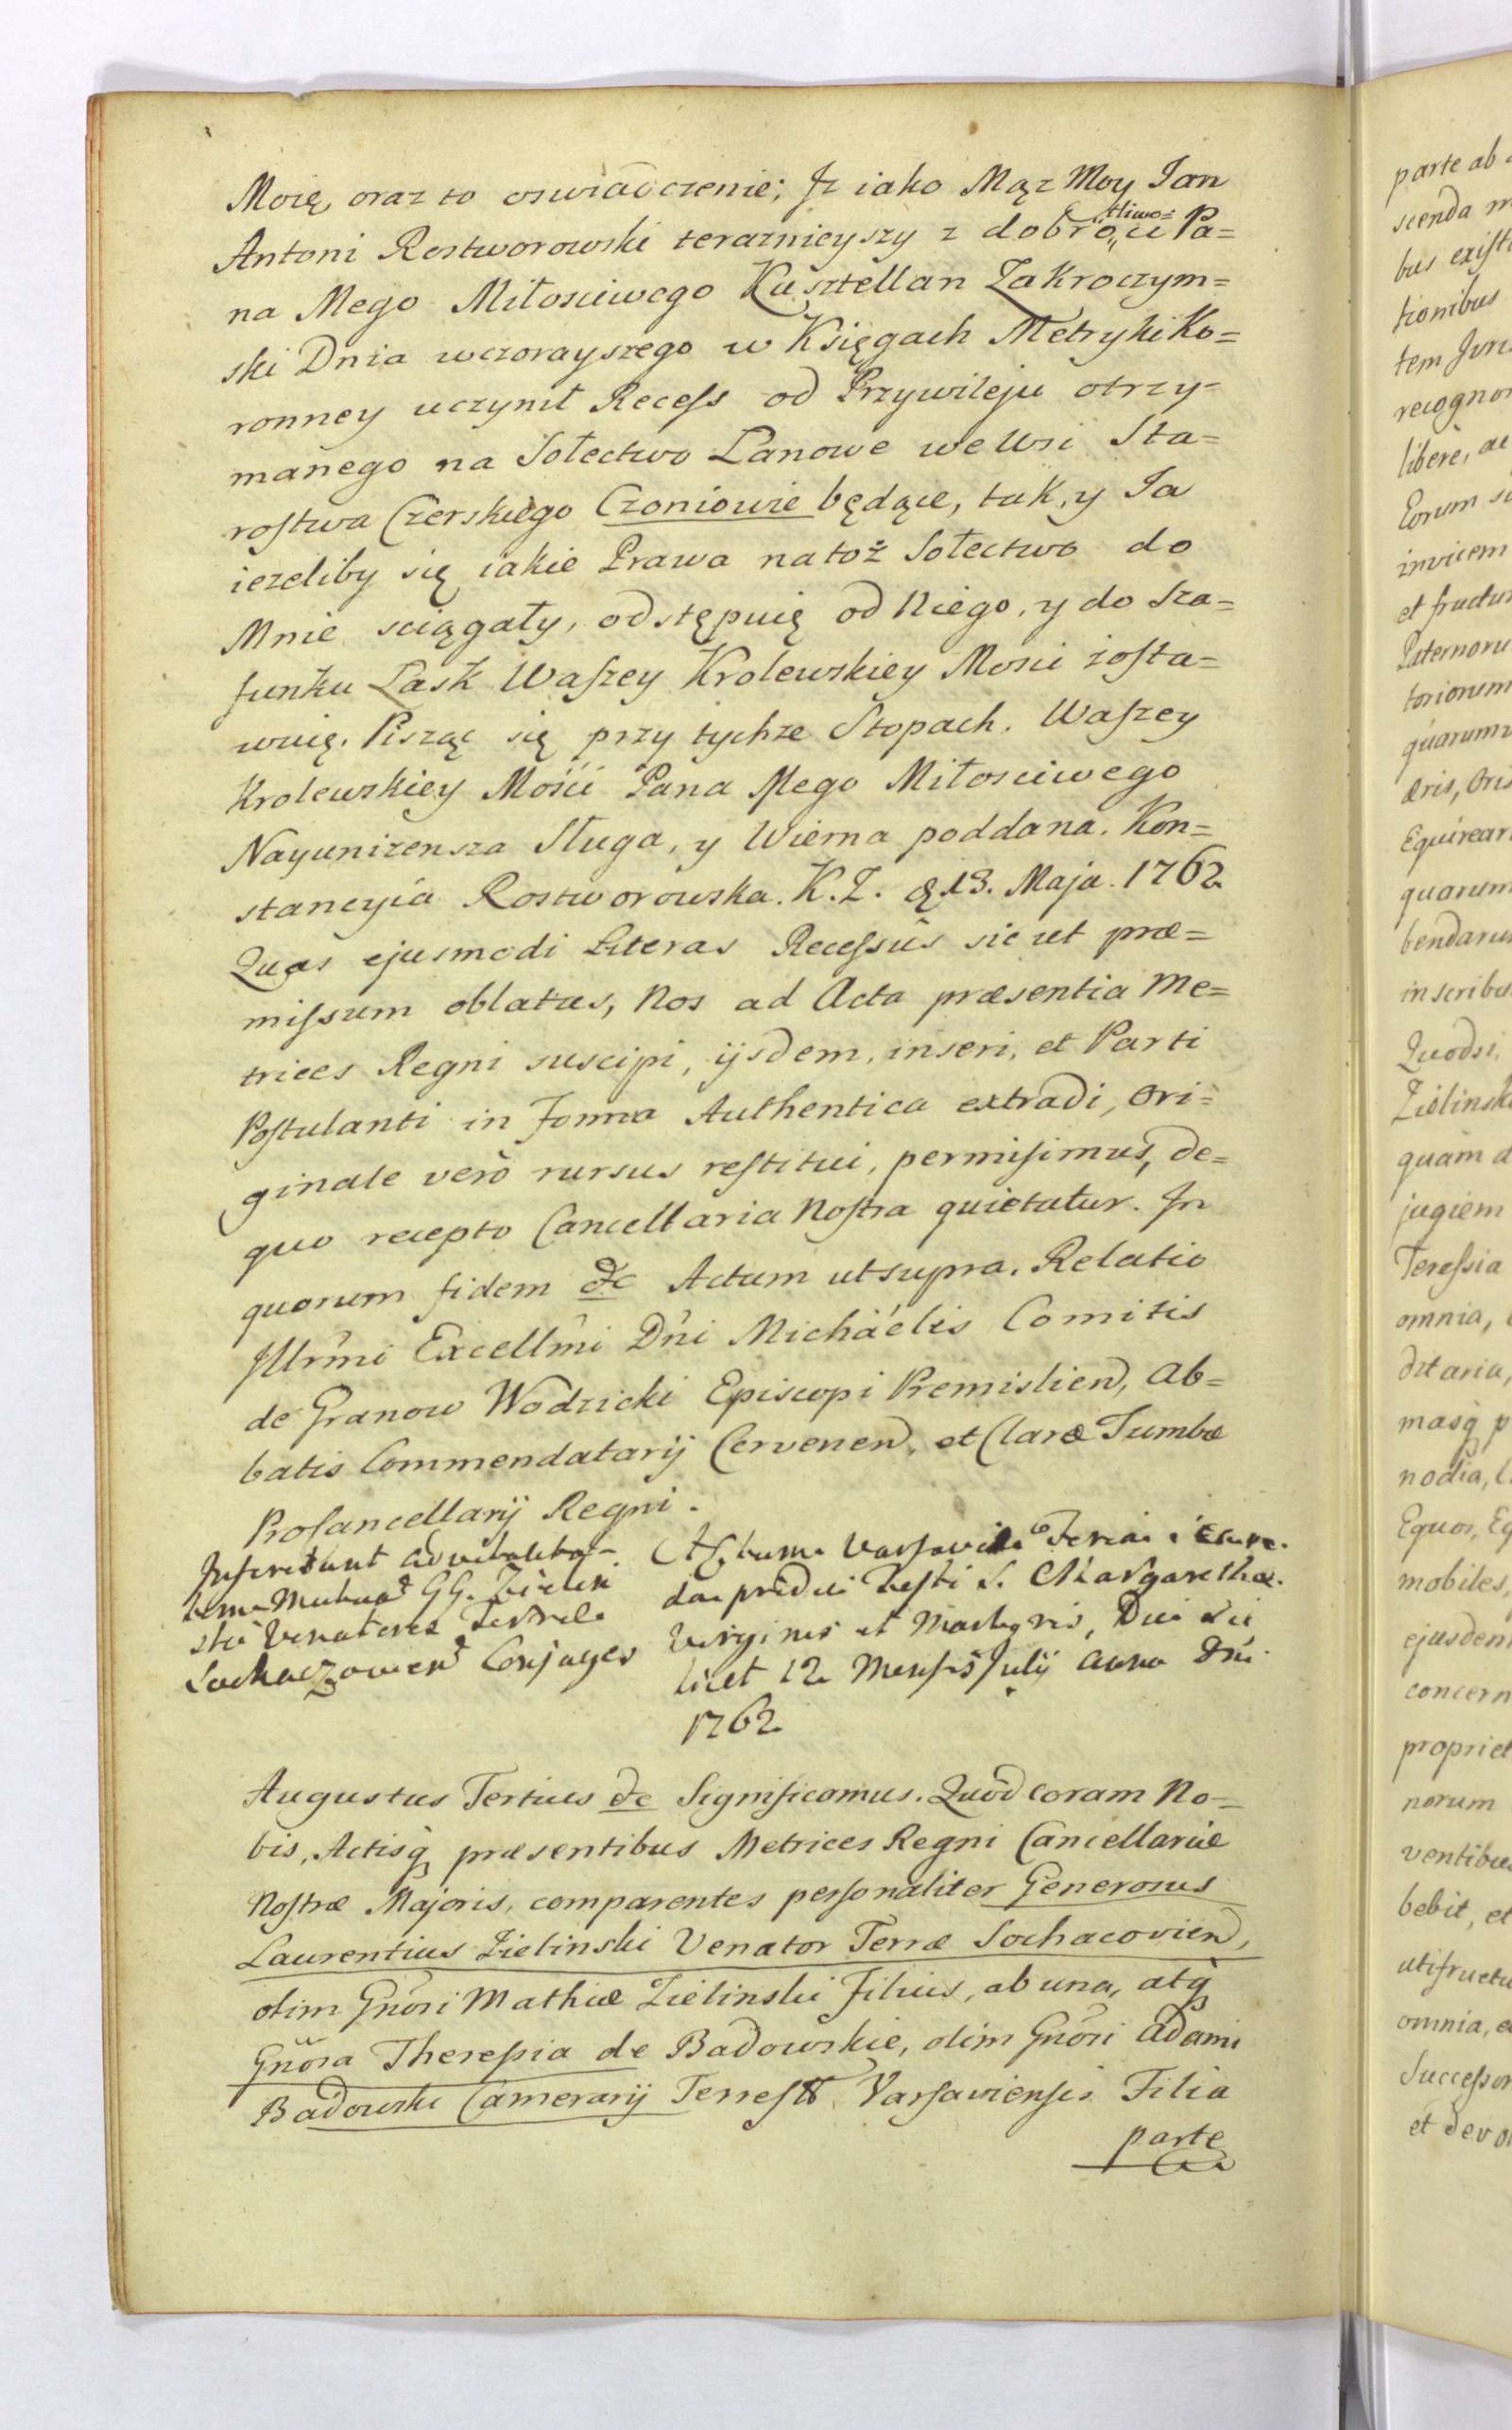 Moię, oraz to oswiadczenie; Jz iako Mąz Moy Jan
Antoni Rostworowski teraznieyszy z dobrotliwo= ści Pa=
na Mego Miłosciwego Kasztellan Zakroczym=
ski Dnia wczorayszego w Księgach Metryki Ko=
ronney uczynił Recess od Przywileju otrzy=
manego na Sołectwo Łanowe we Wsi Sta=
rostwa Czerskiego Czoniowie będące, tak, y Ja
iezeliby się iakie Prawa na toż Sołectwo do
Mnie sciągały, odstępuię od Niego, y do Sza=
funku Łask Waszey Krolewskiey Mosci zosta=
wuię. Pisząc się przy tychze Stopach. Waszey
Krolewskiey Mości Pana Mego Miłosciwego
Nayunizensza Sługa, y Wierna poddana. Kon=
stancyia Rostworowska. K. Z. d. 13. Maja. 1762.
Quas ejusmodi Literas Recessûs sic ut præ=
missum oblatas, Nos ad Acta præsentia Me=
trices Regni suscipi, ijsdem, inseri, et Parti
Postulanti in Forma Authentica extradi, Ori=
ginale verò rursus restitui, permisimus, de=
quo recepto Cancellaria Nostra quietatur. In
quorum fidem &c Actum ut supra. Relatio
Illr̃mi Excellm̃i Dñi Michaélis Comitis
de Granow Wodzicki Episcopi Premislien, Ab=
batis Commendatarij Cervenen, et Claræ Tumbæ
Procancellarij Regni.
Inscribunt advitalita=
tem Mutuam GG. Zielin
ski Venatores Terræ
Sochaczovien Conjuges
Actum Varsaviæ Feria
da pridie Festi S. Margarethæ
Virginis et Martyris, Die sci
licet 12 Mensis Julij Anno Dñi
1762
Augustus Tertius &c Significamus. Quòd coram No=
bis, Actisq́ præsentibus Metrices Regni Cancellariæ
Nostræ Majoris, comparentes personaliter Generosus
Laurentius Zielinski Venator Terræ Sochacovien,
olim Gñosi Mathiæ Zielinski Filius, ab una, atq́
Gñosa Theressia de Badowskie, olim Gñosi Adami
Badowski Camerarij Terrestr Varsaviensis Filia
parte
parte ab
scenda
bus exist
tionibus
tem Juri
recogno
libere, ac
Eorum
invicem
et fructu
Paternoru
toriorum
quarum
æris, Ori
Equirear
quarum
bendaru
inscribu
Quodsi,
Zielinsk
quàm
jugiem
Teressia
omnia,
ditaria,
masq́ p
nodia,
Equos, Eq
mobiles,
ejusdem
concern
propriet
norum
ventibus
bebit, et
utifructu
omnia, e
Successor
et devo